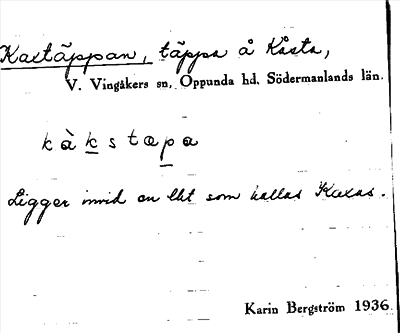 Kaxtäppan, täppa å Kåsta,
V. Vingåkers sn, Oppunda hd. Södermanlands län.
kàkstæpa
Ligger invid en lht som kallas Kaxas.
Karin Bergström 1936